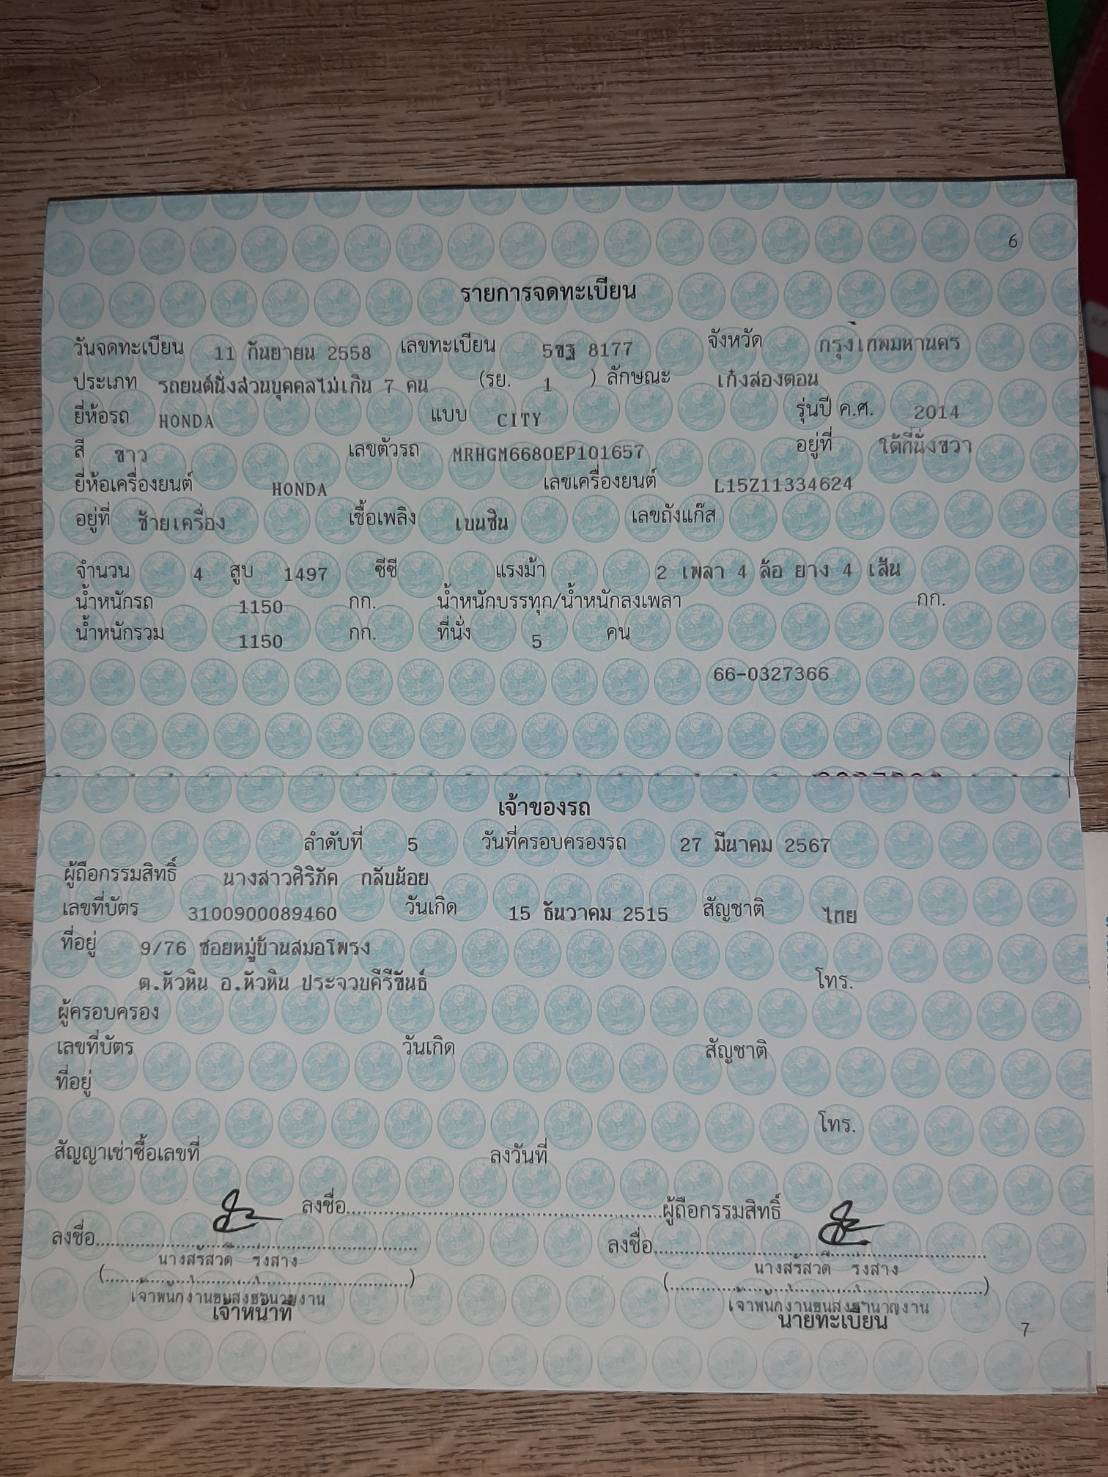 6
รายการจดทะเบียน
วันจดทะเบียน 11 กันยายน 2558 เลขทะเบียน 5ขฐ 8177 จังหวัด กรุงเทพมหานคร
ประเภท รถยนต์นั่งส่วนบุคคลไม่เกิน 7 คน (รย. 1 ) ลักษณะ เก๋งสองตอน
ยี่ห้อรถ HONDA แบบ CITY รุ่นปี ค.ศ. 2014
สี ขาว เลขตัวรถ MRHGM6680EP101657 อยู่ที่ ใต้ที่นั่งขวา
ยี่ห้อเครื่องยนต์ HONDA เลขเครื่องยนต์ L15Z11334624
อยู่ที่ ซ้ายเครื่อง เชื้อเพลิง เบนซิน เลขถังแก๊ส
จำนวน 4 สูบ 1497 ซีซี แรงม้า 2 เพลา 4 ล้อ ยาง 4 เส้น
น้ำหนักรถ 1150 กก. น้ำหนักบรรทุก/น้ำหนักลงเพลา กก.
น้ำหนักรวม 1150 กก. ที่นั่ง 5 คน
66-0327366
เจ้าของรถ
ลำดับที่ 5 วันที่ครอบครองรถ 27 มีนาคม 2567
ผู้ถือกรรมสิทธิ์ นางสาวศิริภัค กลับน้อย
เลขที่บัตร 3100900089460 วันเกิด 15 ธันวาคม 2515 สัญชาติ ไทย
ที่อยู่ 9/76 ซอยหมู่บ้านสมอโพรง
ต.หัวหิน อ.หัวหิน ประจวบคีรีขันธ์ โทร.
ผู้ครอบครอง
เลขที่บัตร วันเกิด สัญชาติ
ที่อยู่
โทร.
สัญญาเช่าซื้อเลขที่ ลงวันที่
ลงชื่อ ผู้ถือกรรมสิทธิ์
ลงชื่อ ลงชื่อ
นางสรัสวดี รงสาง นางสรัสวดี รงสาง
เจ้าพนักงานขนส่งชำนาญงาน เจ้าพนักงานขนส่งชำนาญงาน
เจ้าหน้าที่ นายทะเบียน
7